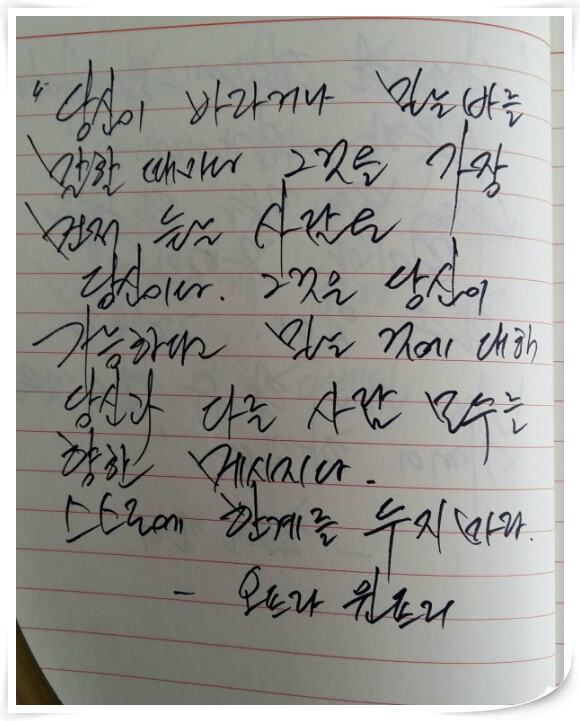 "당신이 바라거나 믿는 바를
말할 때마다 그것을 가장
먼저 듣는 사람은
당신이다. 그것은 당신이
가능하다고 믿는 것에 대해
당신과 다른 사람 모두를
향한 메시지다.
스스로에 한계를 두지 마라.
- 오프라 윈프리